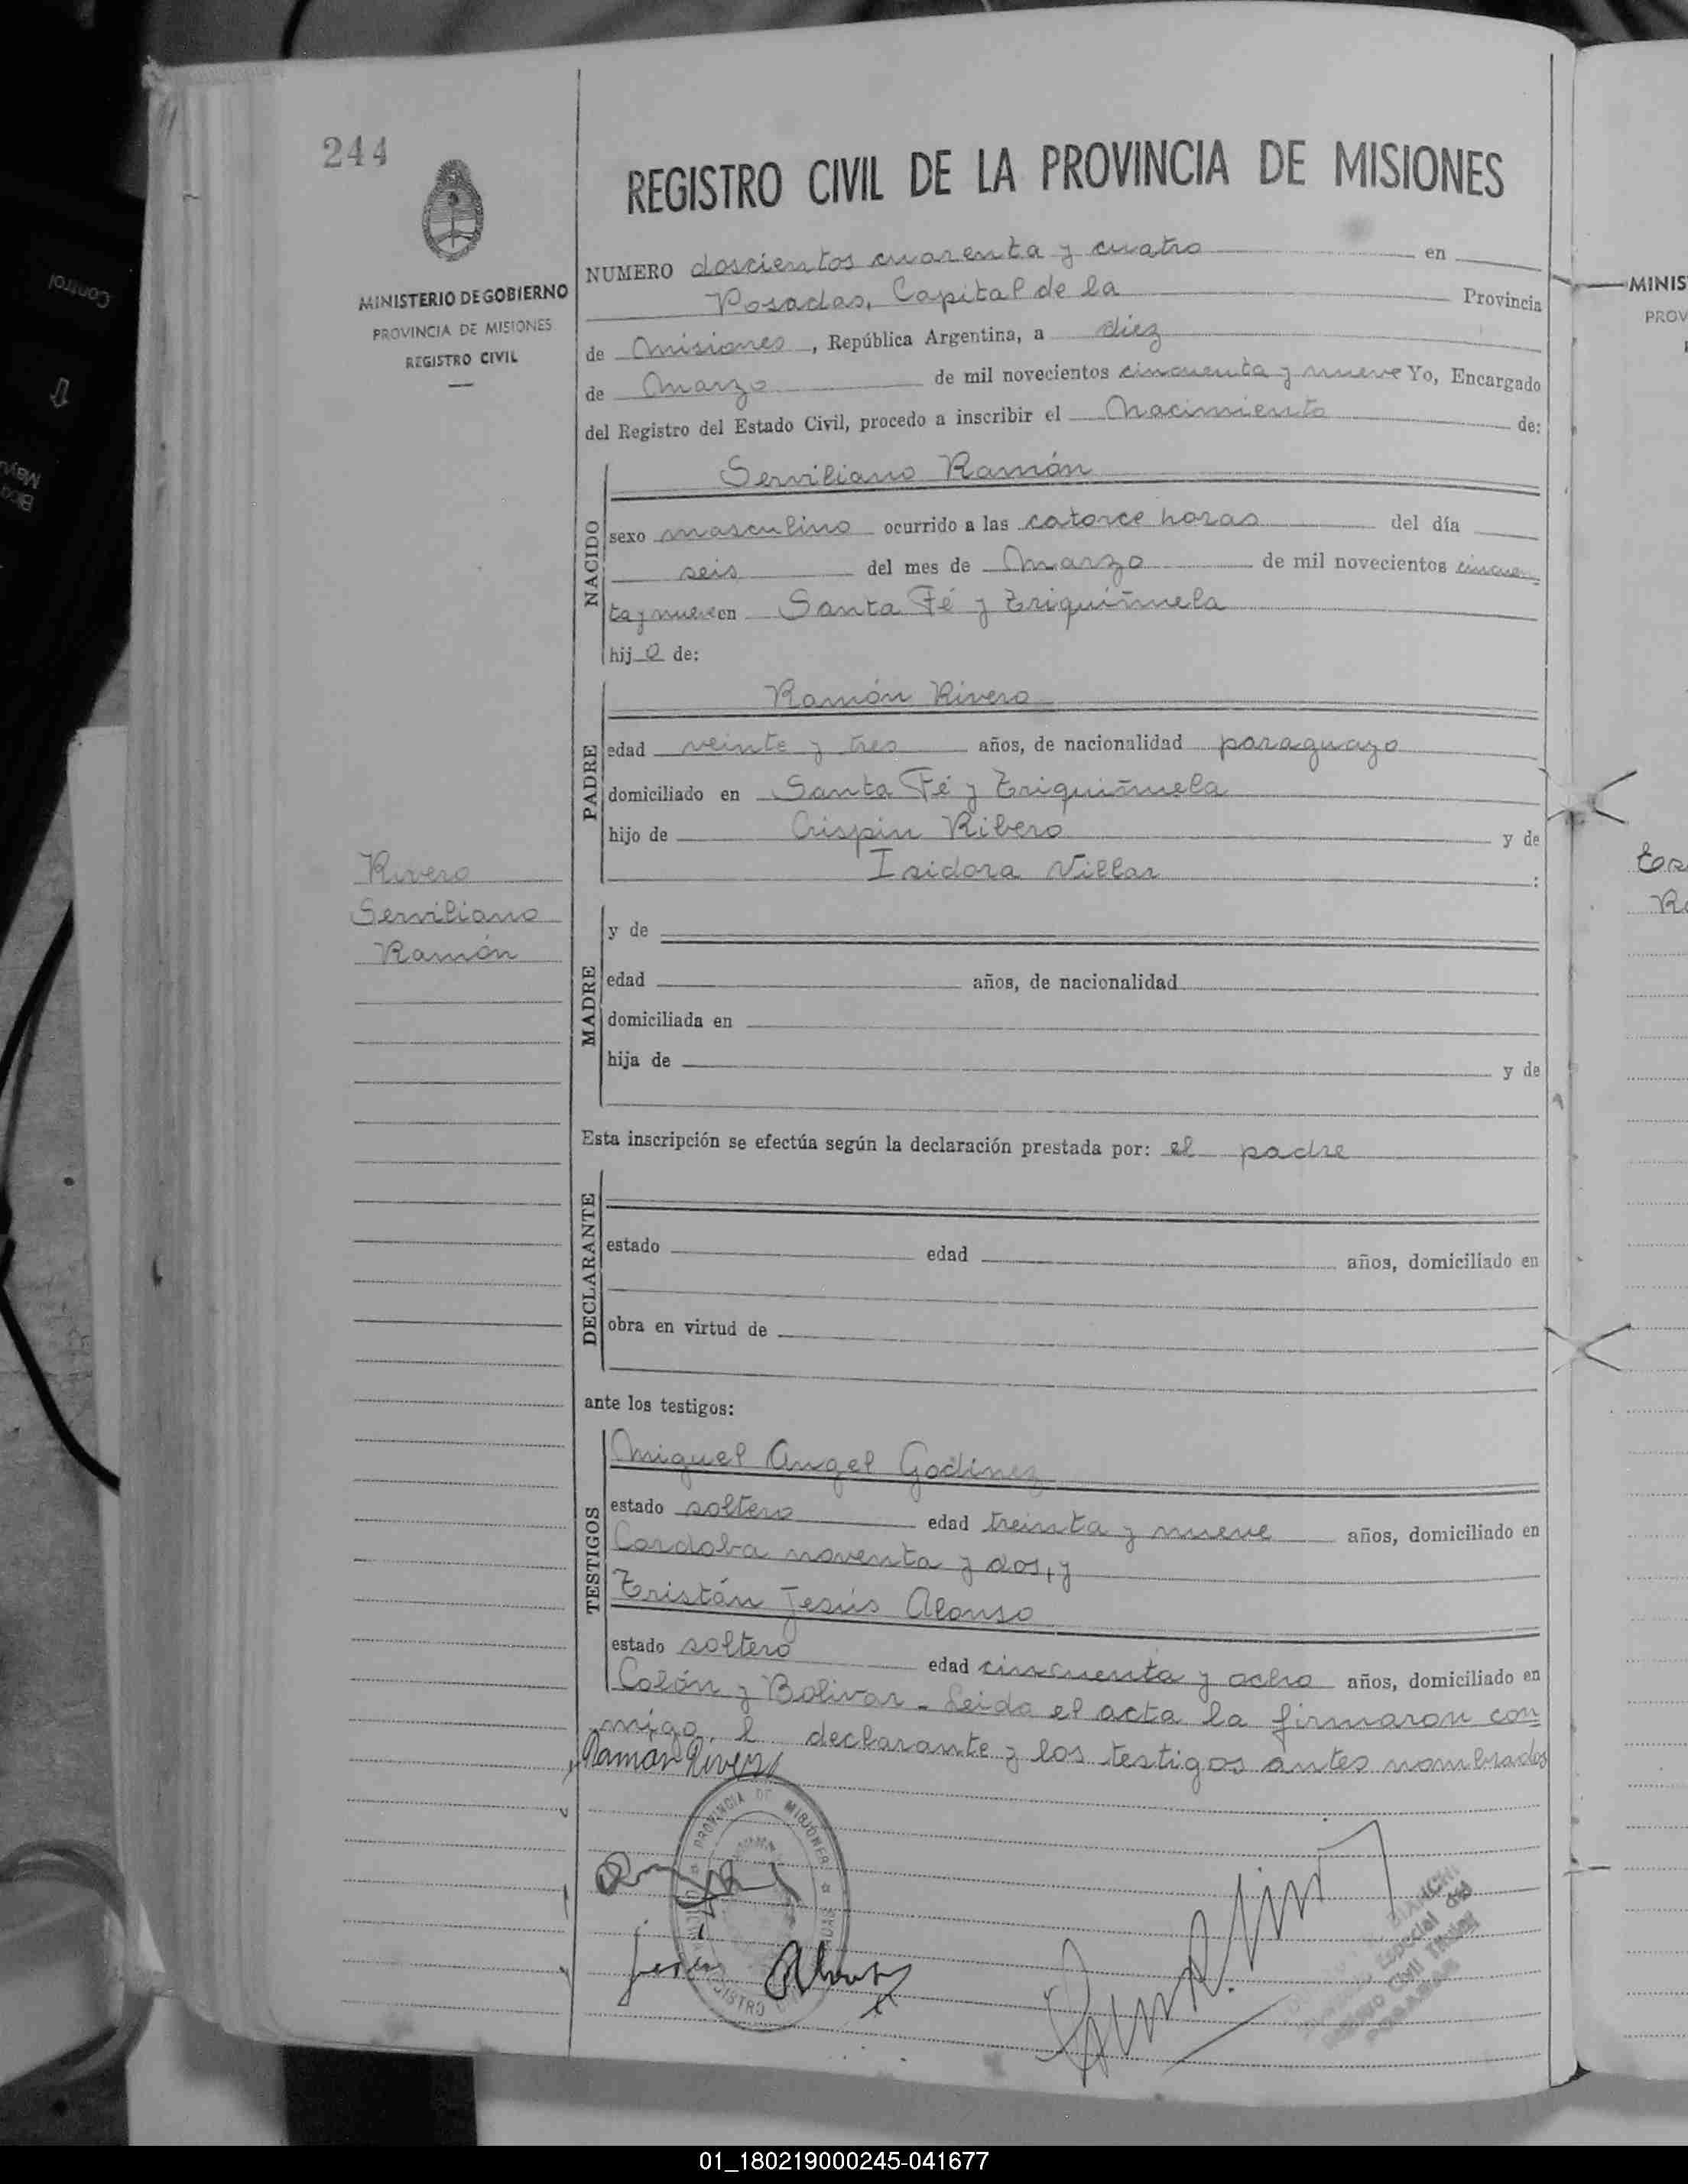 244
MINISTERIO DE GOBIERNO
PROVINCIA DE MISIONES
REGISTRO CIVIL
REGISTRO CIVIL DE LA PROVINCIA DE MISIONES
NUMERO doscientos cuarenta y cuatro en
Posadas, Capital de la Provincia
de Misiones, República Argentina, a diez
de Marzo de mil novecientos cincuenta y nueve Yo, Encargado
del Registro del Estado Civil, procedo a inscribir el Nacimiento de:
NACIDO
Serviliano Ramón
sexo masculino ocurrido a las catorce horas del día
seis del mes de Marzo de mil novecientos cincuen
ta y nueve en Santa Fé y Triquiñuela
hijo de:
PADRE
Ramón Rivero
edad veinte y tres años, de nacionalidad paraguayo
domiciliado en Santa Fé y Triquiñuela
hijo de Crispin Ribero y de
Isidora Villar :
Rivero
Serviliano
Ramón
MADRE
y de
edad años, de nacionalidad
domiciliada en
hija de y de
Esta inscripción se efectúa según la declaración prestada por: el padre
DECLARANTE
estado edad años, domiciliado en
obra en virtud de
ante los testigos:
TESTIGOS
Miguel Angel Godinez
estado soltero edad treinta y nueve años, domiciliado en
Cordoba noventa y dos, y
Tristán Jesús Alonso
estado soltero edad cincuenta y ocho años, domiciliado en
Colón y Bolivar - Leida el acta la firmaron con
migo, l declarante y los testigos antes nombrados
Ramón Rivero
PROVINCIA DE MISIONES
REGISTRO CIVIL
Jesús Alonso
BIANCHI
Especial del
Registro Civil Titular
POSADAS
MINIS
PROV
Control
Bloq
Mayu
01_180219000245-041677